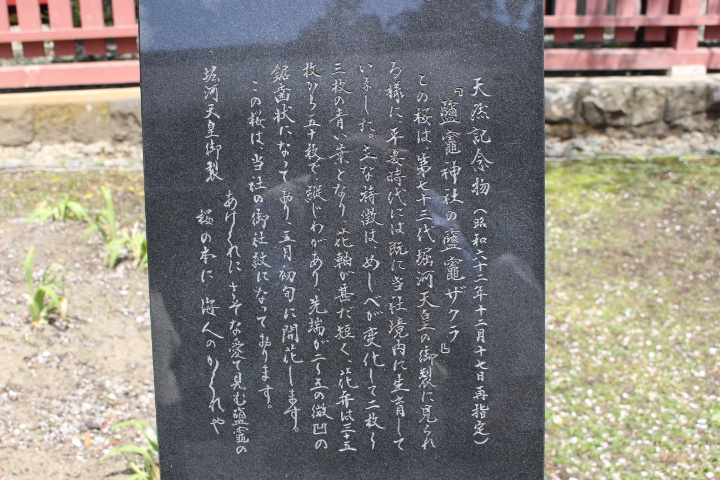 天然記念物（昭和六十二年十二月十七日再指定）
『鹽竈神社の鹽竈ザクラ』
この桜は、第七十三代堀河天皇の御製に見られ
る様に、平安時代には既に当社境内に生育して
いました。主な特徴は、めしべが変化して二枚から
三枚の青い葉となり、花軸が甚だ短く、花弁は三十五
枚から五十枚で縦じわがあり、先端が二〜五の微凹の
鋸歯状になっており、五月初旬に開花します。
この桜は、当社の御社紋になっております。
堀河天皇御製
あけくれに さぞな愛で見む 鹽竈の
桜の本に 海人のかくれや